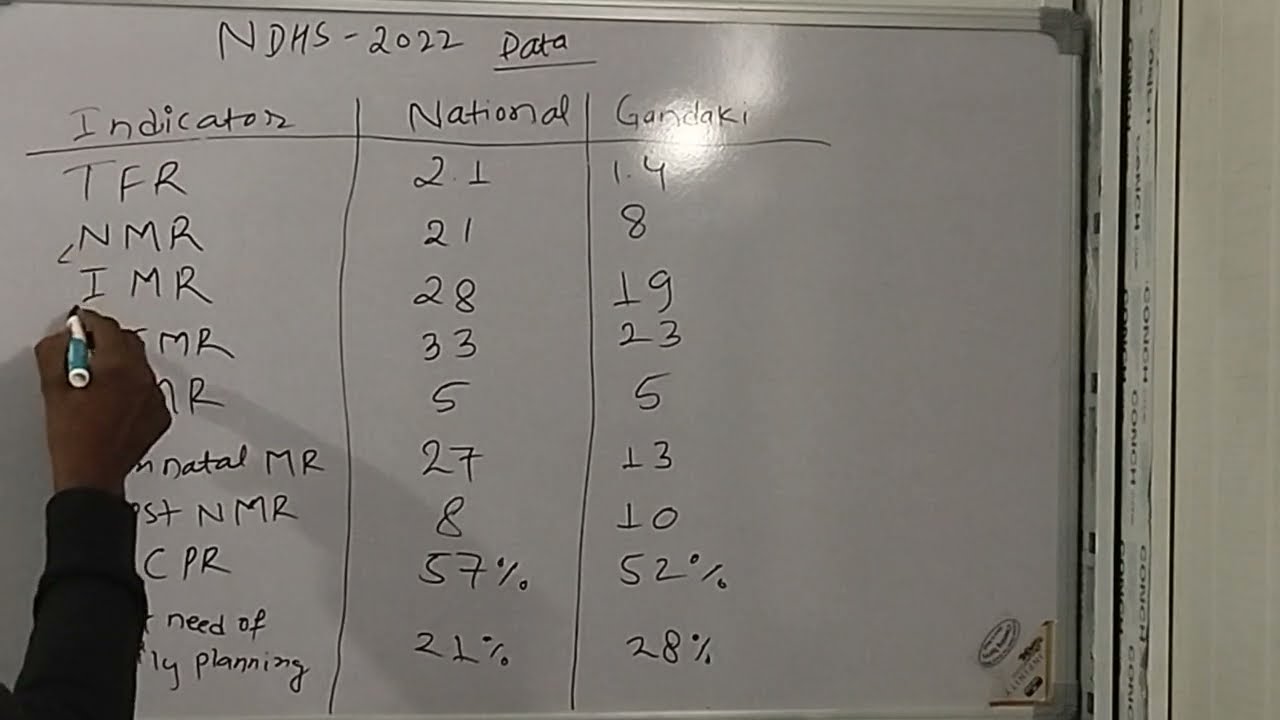 NDHS-2022 Data
Indicator National Gandaki
TFR 2.1 1.4
NMR 21 8
IMR 28 19
MR 33 23
MR 5 5
natal MR 27 13
st NMR 8 10
CPR 57% 52%
need of
ly planning 21% 28%
CONCH CONCH CONCH CONCH